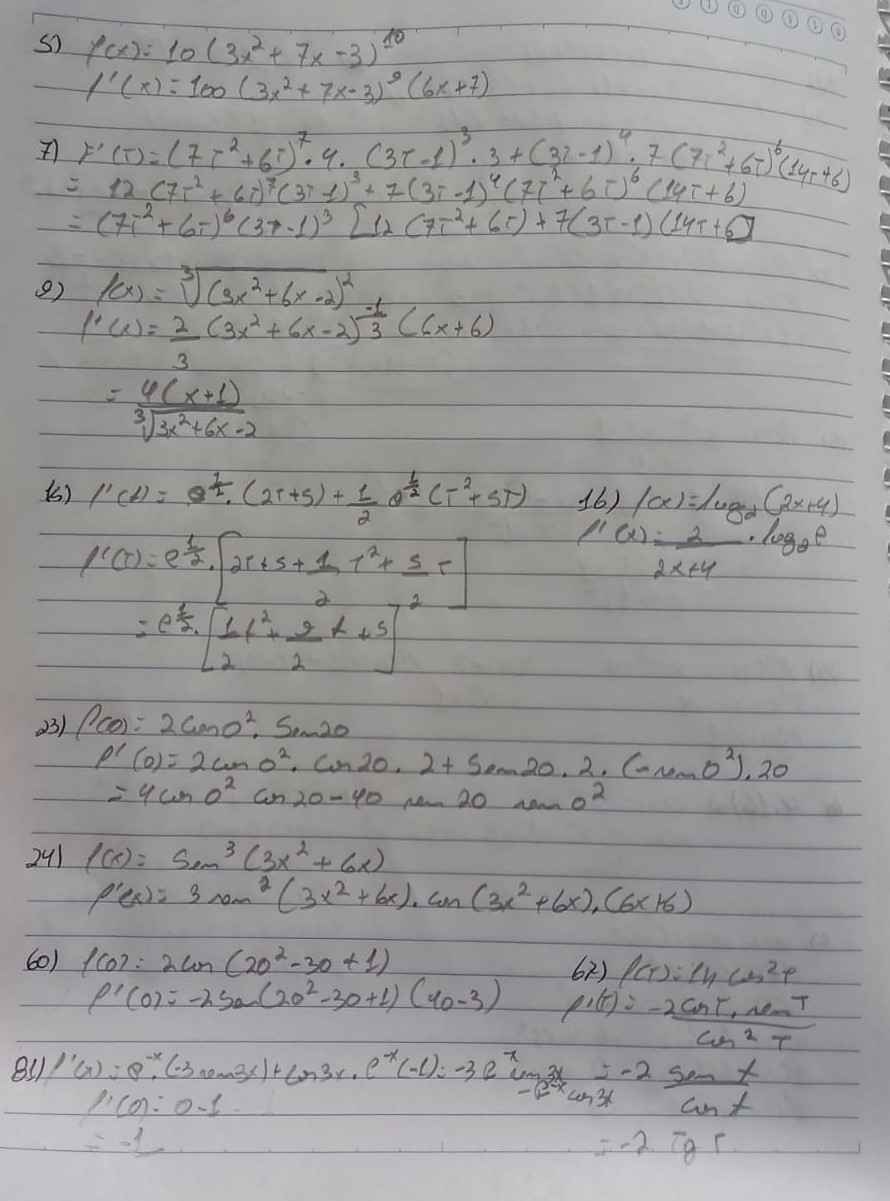 5) f(x)= 10 (3x²+ 7x -3)¹⁰
f'(x)= 100 (3x²+ 7x-3)⁹ (6x+7)
7) F'(T)= (7T²+6T)⁷. 4. (3T-1)³. 3 + (3T-1)⁴. 7 (7T²+6T)⁶(14T+6)
= 12 (7T²+6T)⁷(3T-1)³ + 7(3T-1)⁴(7T²+6T)⁶ (14T+6)
= (7T²+6T)⁶(3T-1)³ [12 (7T²+6T) + 7(3T-1) (14T+6)]
9) f(x) = ∛(3x²+6x-2)²
f'(x)= 2/3 (3x²+6x-2)^(-1/3) (6x+6)
= 4(x+1)/∛3x²+6x-2
15) f'(t)= e^(t/2). (2T+5) + 1/2 e^(t/2) (T²+5T)
16) f(x)=log₂(2x+4)
f'(T)= e^(t/2). [2T+5+ 1/2 T²+ 5/2 T]
f'(x)= 2/(2x+4) . log₂e
= e^(t/2). [1/2 t²+ 9/2 t +5]
23) f(θ)= 2cosθ². Sen2θ
f'(θ)= 2cosθ². cos2θ. 2 + Sen2θ. 2. (-senθ²). 2θ
= 4cosθ² cos2θ - 4θ sen2θ senθ²
24) f(x)= Sen³ (3x²+6x)
f'(x)= 3 sen² (3x²+6x). cos (3x²+6x). (6x+6)
60) f(θ)= 2cos (2θ²-3θ+1)
f'(θ)= -2Sen(2θ²-3θ+1) (4θ-3)
67) f(T)= ln cos²T
f'(T)= -2cosT. senT/cos²T
81) f'(x)= e⁻ˣ.(-3sen3x)+cos3x. e⁻ˣ(-1)= -3e⁻ˣ sen3x -e⁻ˣ cos3x
= -2 sen t/cos t
f'(0)= 0-1
= -1
= -2 Tg T